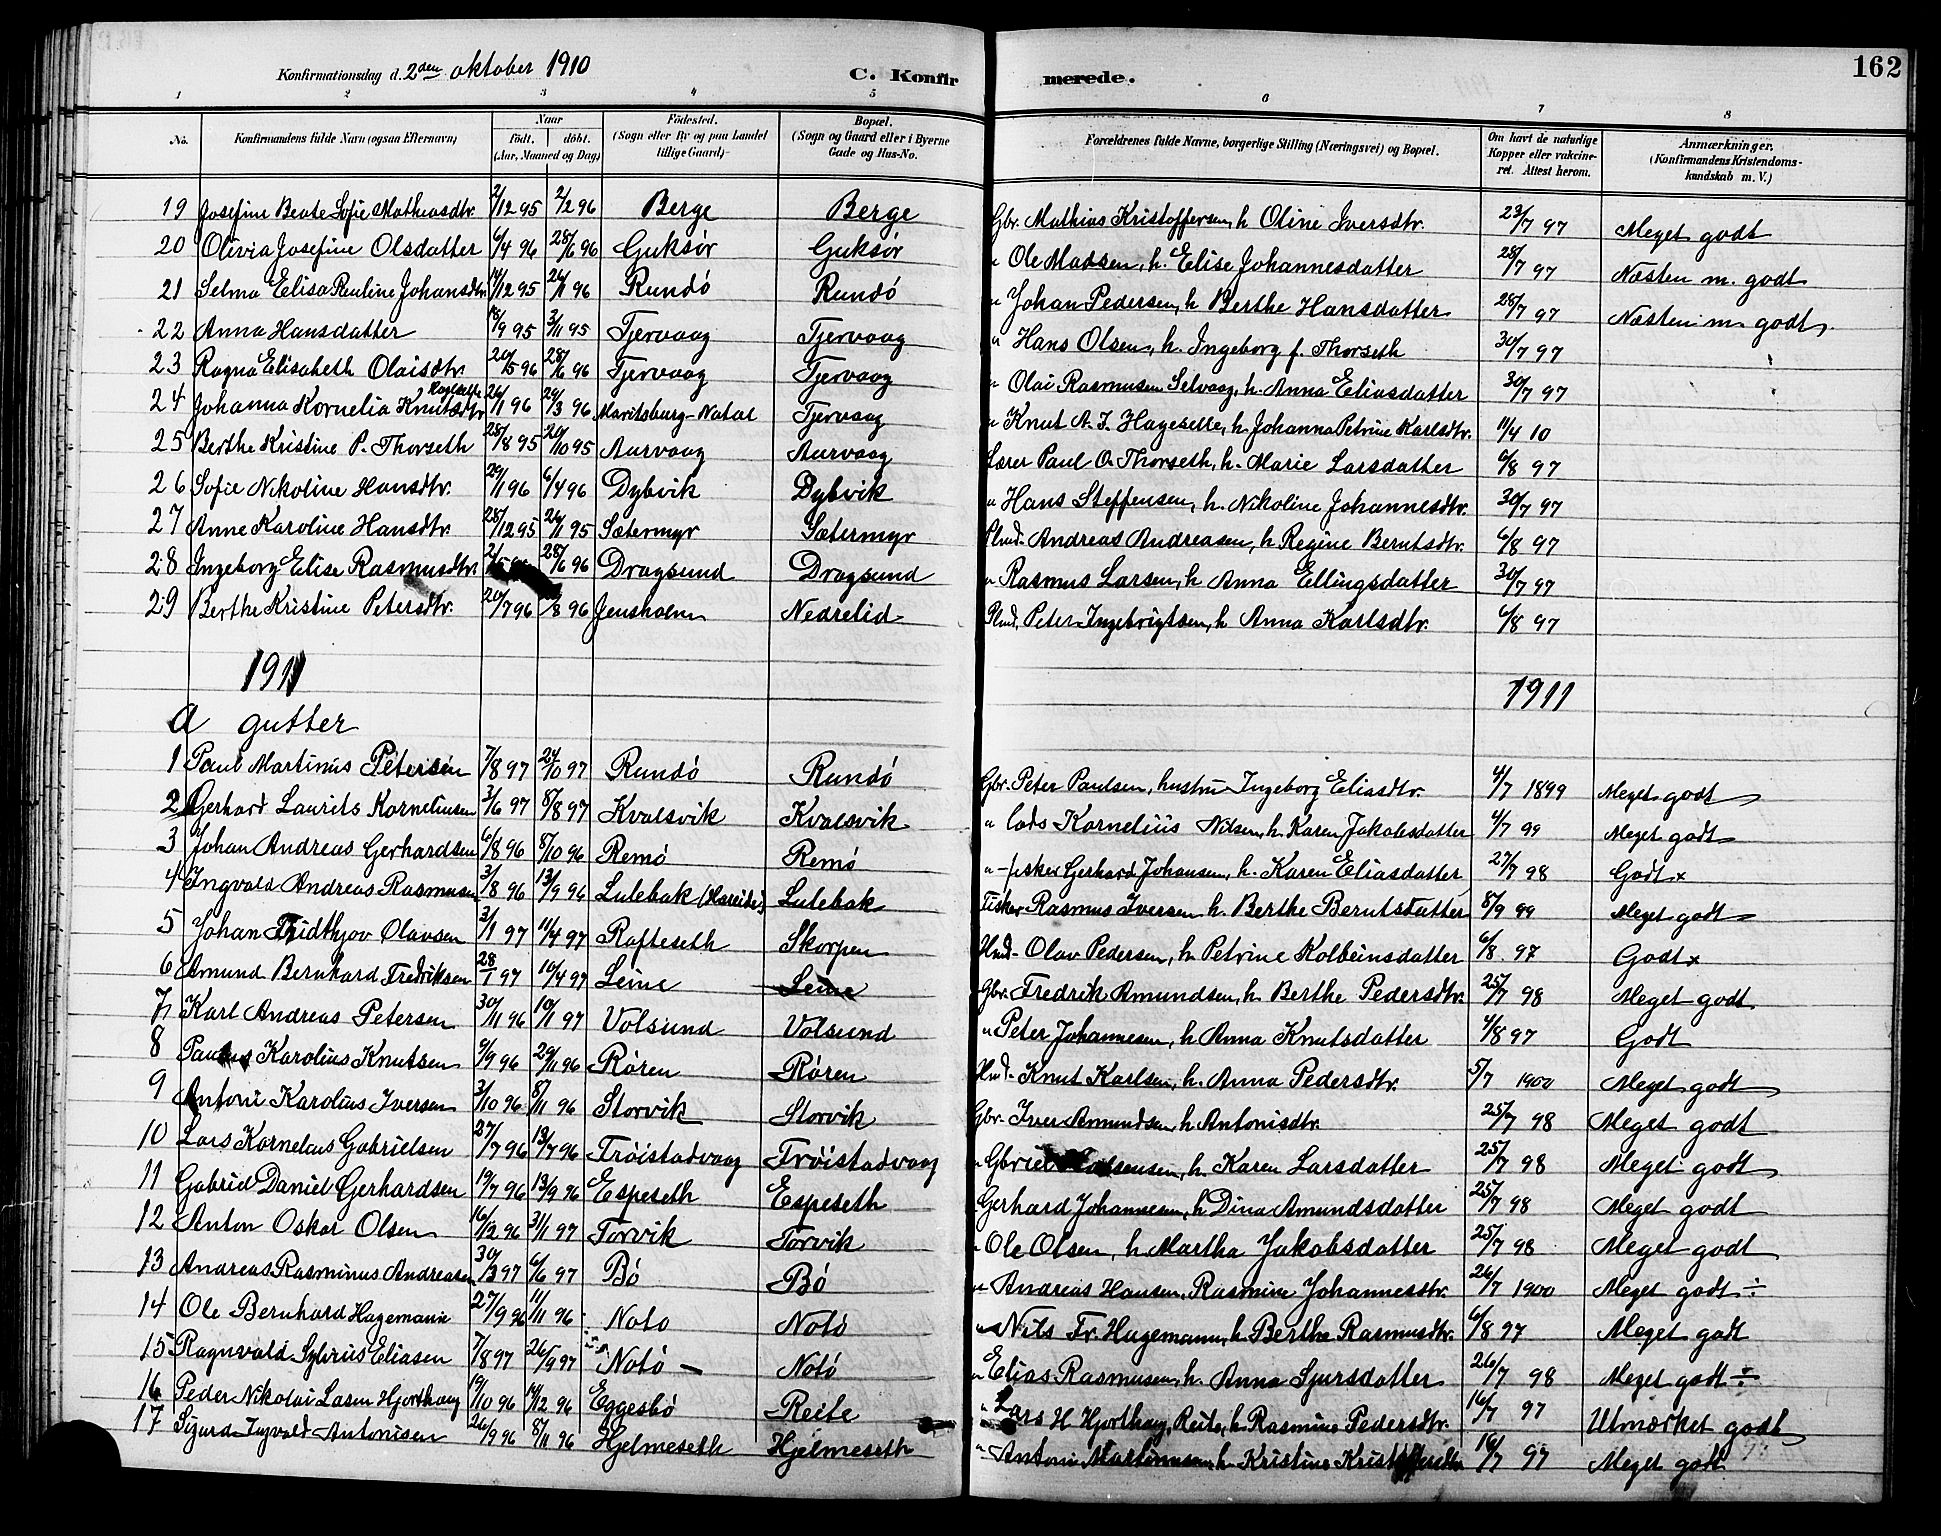 162
Konfirmationsdag d. 2den oktober 1910 C. Konfirmerede.
1 2 3 4 5 6 7 8
No. Konfirmandens fulde Navn (ogsaa Efternavn) Naar født, døbt. (Aar, Maaned og Dag) Fødested. (Sogn eller By og paa Landet tillige Gaard) Bopæl. (Sogn og Gaard eller i Byerne Gade og Hus-No. Forældrenes fulde Navne, borgerlige Stilling (Næringsvei) og Bopæl. Om havt de naturlige Kopper eller vakcineret. Attest herom. Anmærkninger. (Konfirmandens Kristendomskundskab m. V.)
19 Josefine Beate Sofie Mathiasdtr. 2/12 95 2/2 96 Berge Berge Gbr. Mathias Kristoffersen, h Oline Iversdtr. 23/7 97 Meget godt
20 Olivia Josefine Olsdatter 6/4 96 28/6 96 Guksør Guksør " Ole Madsen, h. Elise Johannesdatter 28/7 97 Næsten m. godt
21 Selma Elisa Pauline Johansdtr 14/12 95 26/1 96 Rundö Rundö " Johan Pedersen, h Berthe Hansdatter 28/7 97 Næsten m. godt
22 Anna Hansdatter 18/9 95 3/11 95 Tjervaag Tjervaag " Hans Olsen, h. Ingeborg f. Thorseth 30/7 97
23 Ragna Elisabeth Olaisdtr. 20/5 96 28/6 96 Tjervaag Tjervaag " Olai Rasmussen Selvaag, h. Anna Eliasdatter 30/7 97
24 Johanna Kornelia Knutsdtr 26/1 96 29/3 96 Maritsburg-Natal Tjervaag " Knut A. I. Hageselle, h. Johanna Petrine Karlsdtr. 11/4 10
25 Berthe Kristine P. Thorseth 28/8 95 20/10 95 Aurvaag Aurvaag Lærer Paul O. Thorseth, h. Marie Larsdatter 6/8 97
26 Sofie Nikoline Hansdtr. 29/1 96 6/4 96 Dybvik Dybvik " Hans Steffensen, h. Nikoline Johannesdtr. 30/7 97
27 Anne Karoline Hansdtr. 28/12 95 26/1 95 Sætermyr Sætermyr Plmd. Andreas Andreasen, h Regine Berntsdtr. 6/8 97
28 Ingeborg Elise Rasmusdtr. 28/6 96 Dragsund Dragsund " Rasmus Larsen, h Anna Ellingsdatter 30/7 97
29 Berthe Kristine Petersdtr. 20/7 96 /8 96 Jensholm Nedrelid Plmd. Peter Ingebrigtsen, h Anna Karlsdtr. 6/8 97
1911 1911
A gutter
1 Paul Martinus Petersen 7/8 97 24/10 97 Rundö Rundö Gbr. Peter Paulsen, hustru Ingeborg Eliasdtr. 4/7 1899 Meget godt
2 Gerhard Laurits Korneliusen 3/6 97 8/8 97 Kvalsvik Kvalsvik " lods Kornelius Nilsen, h. Karen Jakobsdatter 4/7 99 Meget godt
3 Johan Andreas Gerhardsen 6/8 96 8/10 96 Remö Remö " - fisker Gerhard Johansen, h. Karen Eliasdatter 27/7 98 Godt x
4 Ingvald Andreas Rasmusen 3/8 96 13/9 96 Lulebak (Hareide) Lulebak Fisker Rasmus Iversen h. Berthe Berntsdatter 8/9 99 Meget godt
5 Johan Fridthjov Olavsen 3/1 97 11/4 97 Rafteseth Skorpen Plmd. Olav Pedersen, h Petrine Kolbeinsdatter 6/8 97 Godt x
6 Amund Bernhard Fredriksen 28/1 97 10/4 97 Leine Leine Gbr. Fredrik Amundsen, h. Berthe Pedersdtr. 25/7 98 Meget godt
7 Karl Andreas Petersen 30/11 96 10/1 97 Volsund Volsund " Peter Johannesen, h Anna Knutsdatter 4/8 97 Godt
8 Karolius Knutsen 9/9 96 29/11 96 Røren Røren Plmd. Knut Karlsen, h. Anna Pedersdtr. 5/7 1900 Meget godt
9 Antoni Karolius Iversen 3/10 96 8/11 96 Storvik Storvik Gbr. Iver Amundsen, h Antonisdtr. 25/7 98 Meget godt
10 Lars Kornelius Gabrielsen 27/7 96 13/7 96 Frøistadvaag Frøistadvaag " h. Karen Larsdatter 25/7 98 Meget godt
11 Gabriel Daniel Gerhardsen 19/7 96 13/9 96 Espeseth Espeseth Gerhard Johannesen, h Dina Amundsdatter 25/7 98 Meget godt
12 Anton Oskar Olsen 16/12 96 31/1 97 Torvik Torvik " Ole Olsen, h Martha Jakobsdatter 25/7 98 Meget godt
13 Andreas Rasminus Andreasen 30/3 97 6/6 97 Bö Bö " Andreas Hansen, Rasmine Johannesdtr. 26/7 1900 Meget godt ÷
14 Ole Bernhard Hagemann 27/9 96 11/11 96 Noto Notö " Nils Fr. Hagemann, h. Berthe Rasmusdtr. 6/8 97 Meget godt
15 Ragnvald Sylvius Eliasen 7/8 97 26/9 97 Notö Notö " Elias Rasmusen, h. Anna Sjursdatter 26/7 98 Meget godt ÷
16 Peder Nikolai Larsen Hjorthaug 19/10 96 14/12 96 Eggesbö Reite " Lars H Hjorthaug, Reite, h Rasmine Pedersdtr. 16/7 97 Utmærket godt
17 Sigurd Ingvald Antonisen 26/9 96 8/11 96 Hjelmeseth Hjelmeseth " Antoni Martinusen, h Kristine 16/7 97 Meget godt